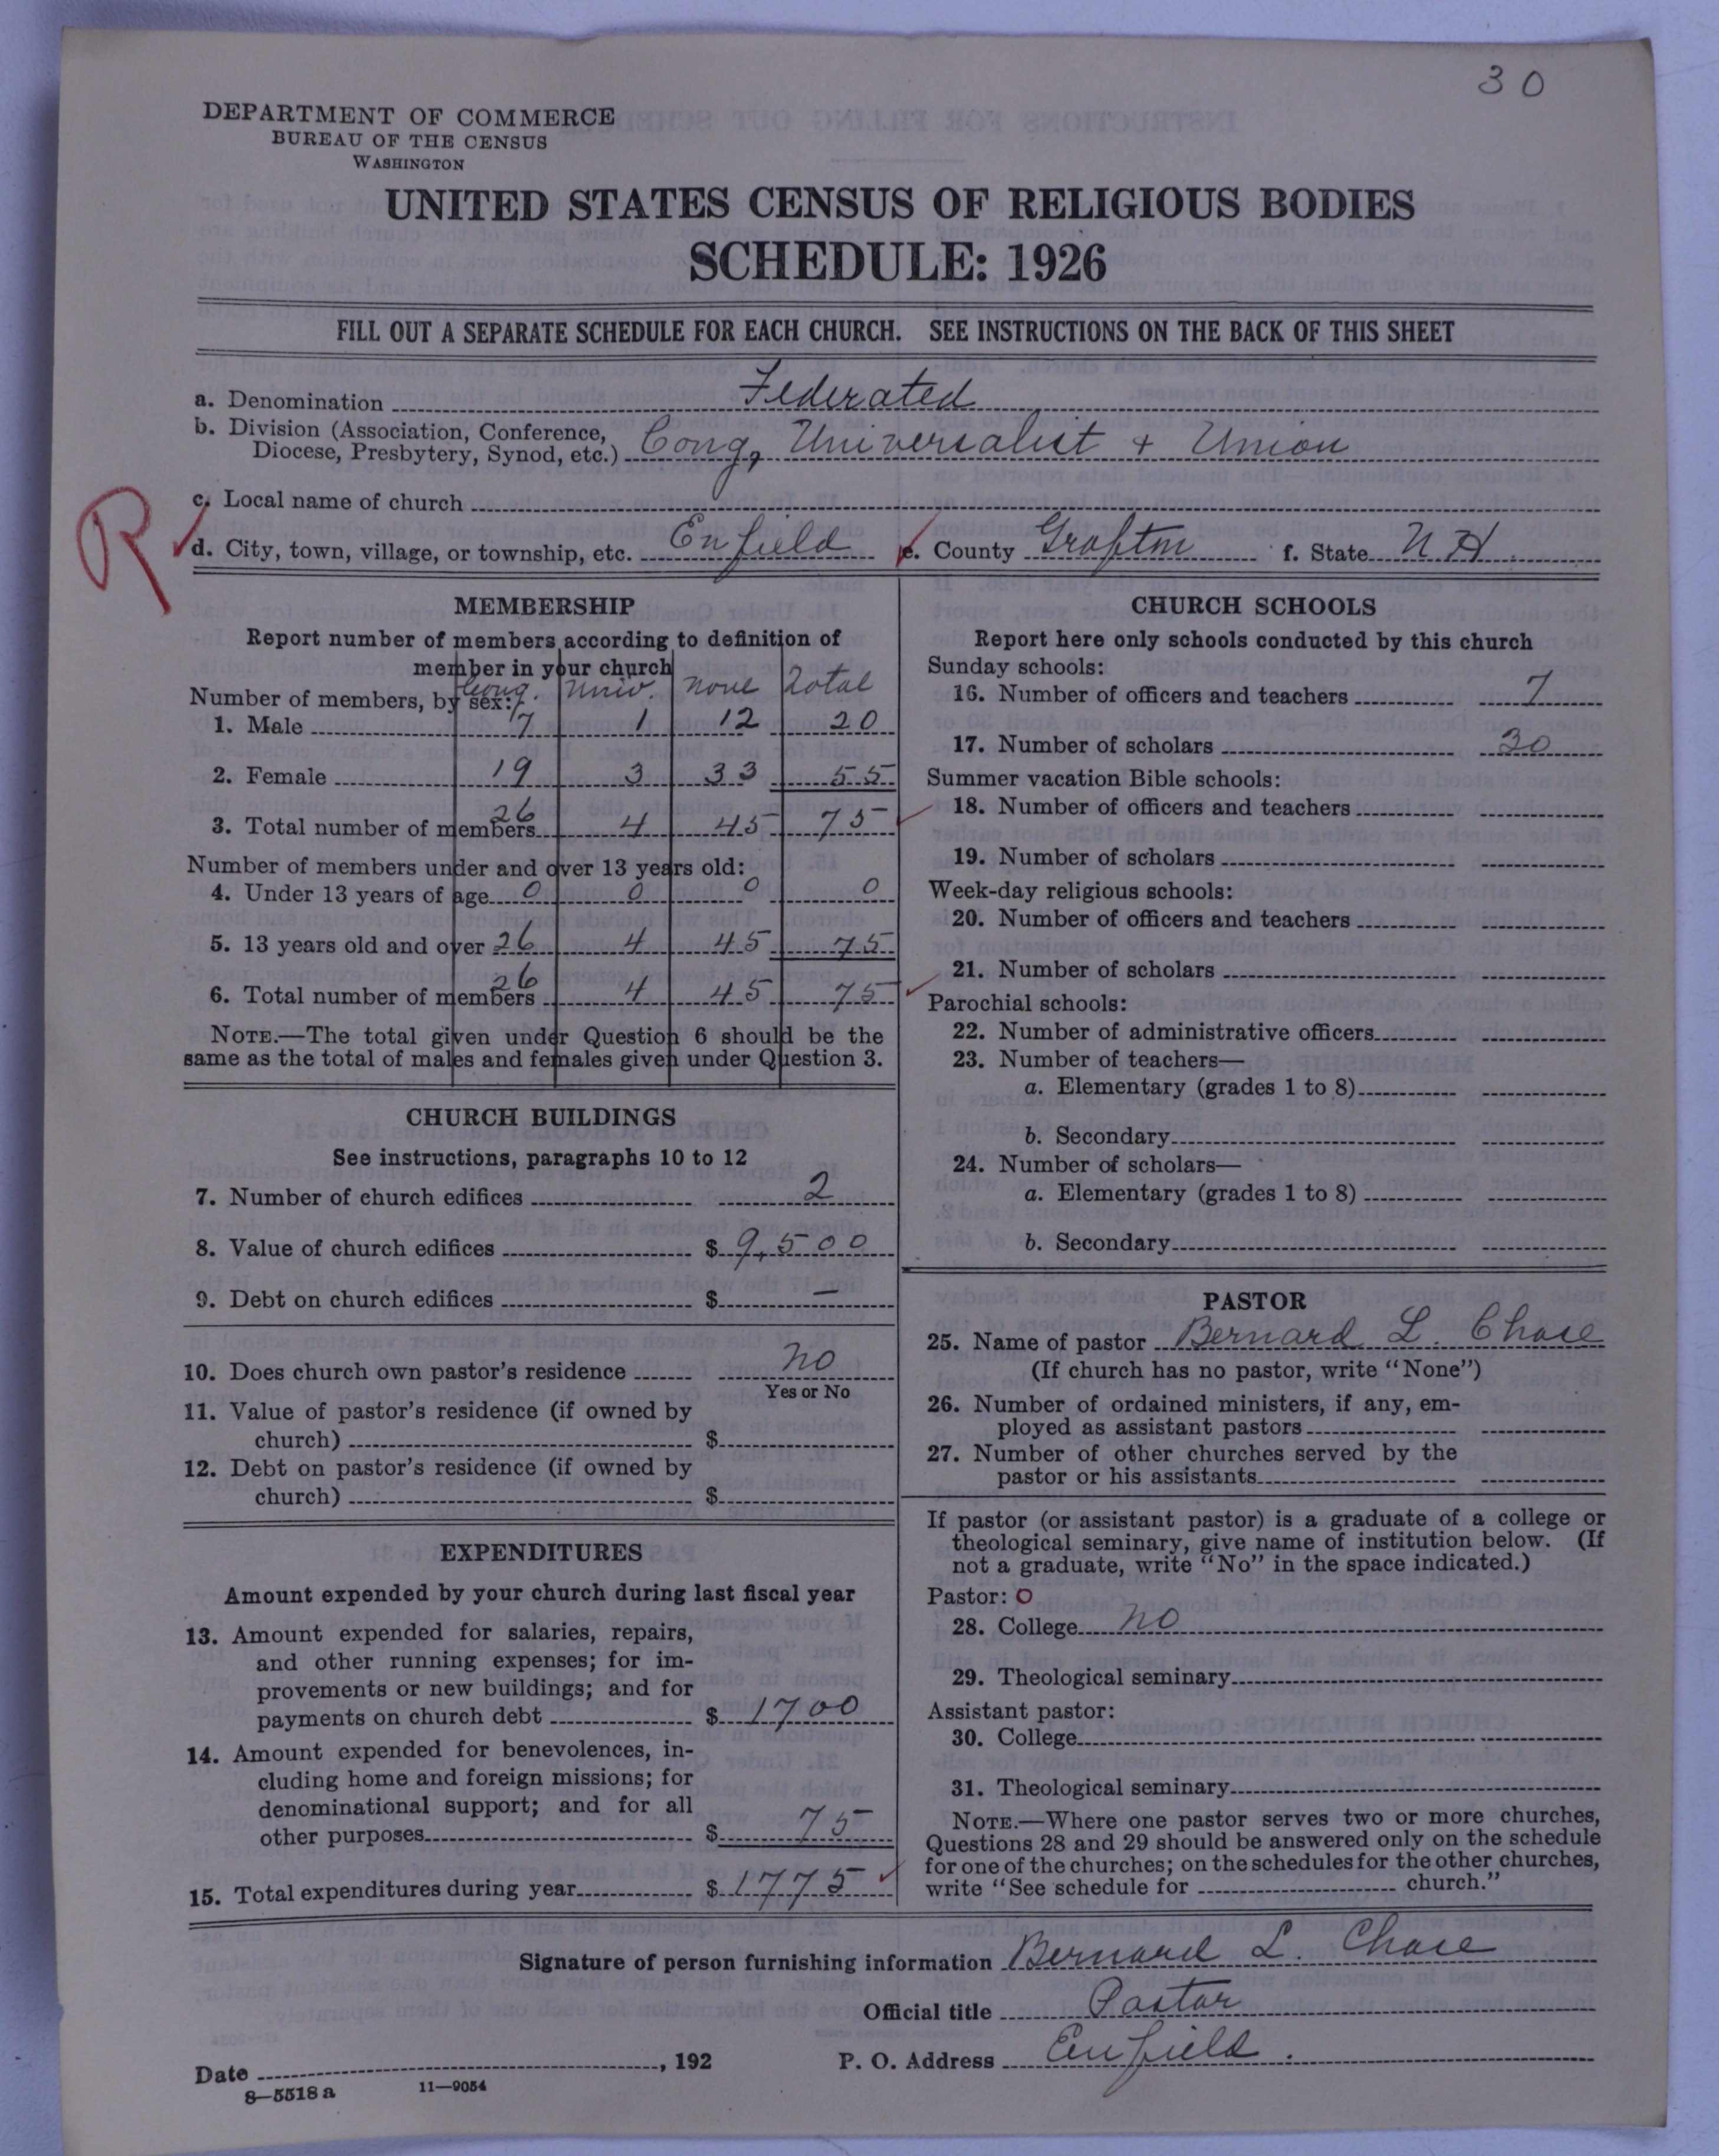 30
DEPARTMENT OF COMMERCE
BUREAU OF THE CENSUS
WASHINGTON
UNITED STATES CENSUS OF RELIGIOUS BODIES
SCHEDULE: 1926
FILL OUT A SEPARATE SCHEDULE FOR EACH CHURCH. SEE INSTRUCTIONS ON THE BACK OF THIS SHEET
a. Denomination Federated
b. Division (Association, Conference,
Diocese, Presbytery, Synod, etc.) Cong, Universalist + Union
R
c. Local name of church
d. City, town, village, or township, etc. Enfield e. County Grafton f. State N H.
MEMBERSHIP
Report number of members according to definition of
member in your church
Cong. Univ. none Total
Number of members, by sex:
1. Male 7 1 12 20
2. Female 19 3 33 55
3. Total number of members 26 4 45 75
Number of members under and over 13 years old:
4. Under 13 years of age 0 0 0 0
5. 13 years old and over 26 4 45 75
6. Total number of members 26 4 45 75
NOTE.—The total given under Question 6 should be the
same as the total of males and females given under Question 3.
CHURCH BUILDINGS
See instructions, paragraphs 10 to 12
7. Number of church edifices 2
8. Value of church edifices $ 9,500
9. Debt on church edifices $ —
10. Does church own pastor's residence no
Yes or No
11. Value of pastor's residence (if owned by
church) $
12. Debt on pastor's residence (if owned by
church) $
EXPENDITURES
Amount expended by your church during last fiscal year
13. Amount expended for salaries, repairs,
and other running expenses; for im-
provements or new buildings; and for
payments on church debt $ 1700
14. Amount expended for benevolences, in-
cluding home and foreign missions; for
denominational support; and for all
other purposes $ 75
15. Total expenditures during year $ 1775
CHURCH SCHOOLS
Report here only schools conducted by this church
Sunday schools:
16. Number of officers and teachers 7
17. Number of scholars 30
Summer vacation Bible schools:
18. Number of officers and teachers
19. Number of scholars
Week-day religious schools:
20. Number of officers and teachers
21. Number of scholars
Parochial schools:
22. Number of administrative officers
23. Number of teachers—
a. Elementary (grades 1 to 8)
b. Secondary
24. Number of scholars—
a. Elementary (grades 1 to 8)
b. Secondary
PASTOR
25. Name of pastor Bernard L. Chase
(If church has no pastor, write "None")
26. Number of ordained ministers, if any, em-
ployed as assistant pastors
27. Number of other churches served by the
pastor or his assistants
If pastor (or assistant pastor) is a graduate of a college or
theological seminary, give name of institution below. (If
not a graduate, write "No" in the space indicated.)
Pastor: O
28. College no
29. Theological seminary
Assistant pastor:
30. College
31. Theological seminary
NOTE.—Where one pastor serves two or more churches,
Questions 28 and 29 should be answered only on the schedule
for one of the churches; on the schedules for the other churches,
write "See schedule for church."
Signature of person furnishing information Bernard L. Chase
Official title Pastor
Date , 192 P. O. Address Enfield.
8—5518 a 11—9054